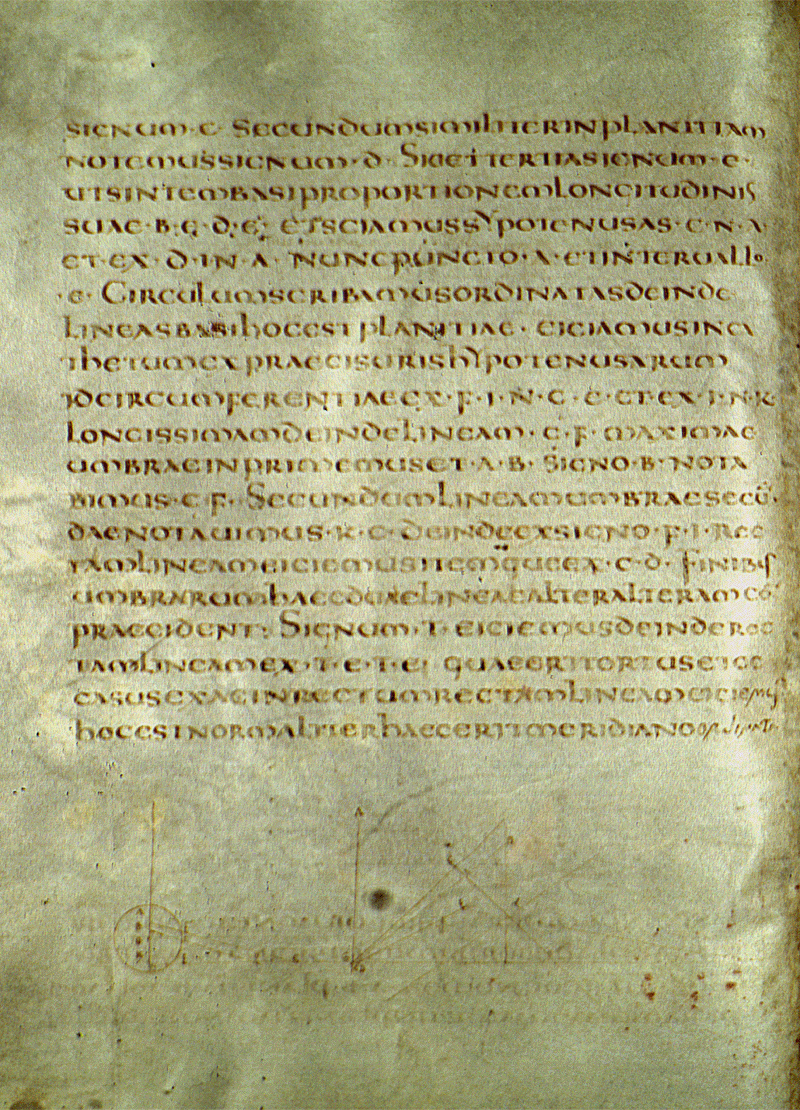 SIGNUM·C· SECUNDUMSIMILITERINPLANITIAM
NOTEMUSSIGNUM·D· SICETTERTIASIGNUM·E·
UTSINTEMBASIPROPORTIONEMLONGITUDINIS
SUAE·B·C·D·E· ETSCIAMUSSYPOTENUSAS·C·N·A
ETEX·D·IN·A· NUNCPUNCTO·A·ETINTERUALLO
·E· CIRCULUMSCRIBAMUSORDINATASDEINDE
LINEASBASIHOCESTPLANITIAE· EICIAMUSINCA
THETUMEXPRAECISURISHYPOTENUSARUM
IDCIRCUMFERENTIAEEX·F·I·N·C· E·ETEX·I·N·K
LONGISSIMAMDEINDELINEAM·C·F· MAXIMAE
UMBRAEINPRIMEMUSET·A·B· SIGNO·B·NOTA
BIMUS·C·F· SECUNDUMLINEAMUMBRAESECŪ
DAENOTAUIMUS·K·C·DEINDEEXSIGNO·F·I·REC
TAMLINEAMEICIEMUSITEMQUEEX·C·D· FINIBUS
UMBRARUMHAECDUAELINEAEALTERALTERAMCO
PRAECIDENT· SIGNUM·T·EICIEMUSDEINDEREC
TAMLINEAMEX·T·E·T·E· QUAEERITORTUSETOC
CASUSEXACINRECTUMRECTAMLINEAMEICIEMUS
HOCESTNORMALITERHAECERITMERIDIANO
A